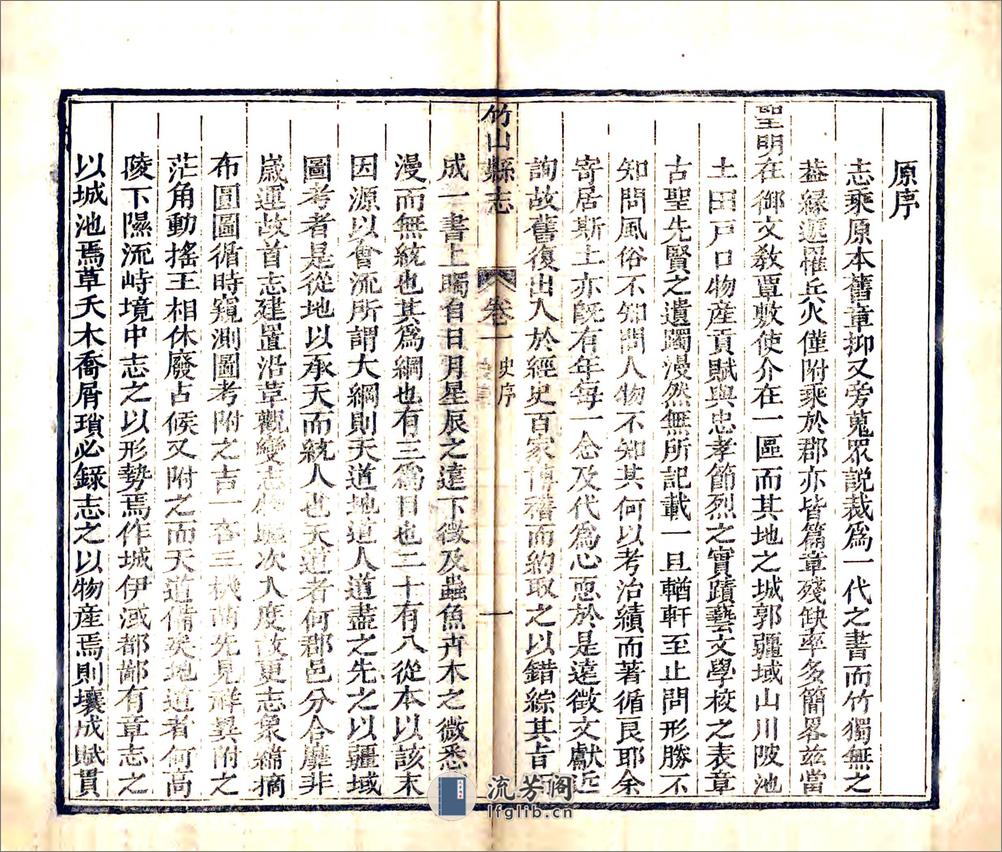 原序
志乘原本舊章抑又旁蒐眾說裁爲一代之書而竹獨無之
蓋緣遝罹兵火僅附乘於郡亦皆篇章殘缺率多簡畧玆當
聖明在御文敎覃敷使介在一區而其地之城郭疆域山川陂池
土田戸口物産貢賦與忠孝節烈之實蹟藝文學校之表章
古聖先賢之遺躅漫然無所記載一旦輶軒至止問形勝不
知問風俗不知問人物不知其何以考治績而著循良耶余
寄居斯土亦旣有年每一念及代爲心恧於是遠徵文獻近
詢故舊復出入於經史百家博稽而約取之以錯綜其旨
竹山縣志
卷一
史序
一
成一書上矚自日月星辰之遠下徵及蟲魚卉木之微悉
漫而無統也其爲綱也有三爲目也二十有八從本以該末
因源以會流所謂大綱則天道地道人道盡之先之以疆域
圖考者是從地以承天而統人也天道者何郡邑分合靡非
歲運故首志建置沿革觀變志躔次入度故更志象緯摘
布圖圖循時窺測圖考附之吉一咎三機萌先見祥異附之
茫角動搖王相休廢占候又附之而天道備矣地道者何高
陵下隰流峙境中志之以形勢焉作城伊淢都鄙有章志之
以城池焉草夭木喬屑瑣必錄志之以物産焉則壤成賦貫
流芳阁
lfglib.cn